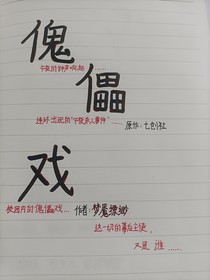 傀
午夜的钟声响起……
儡
连环出现的“午夜杀人事件”……
原作：七创社
戏
校园内的傀儡戏…
作者：梦墨
这一切的幕后主使，
又是 谁……